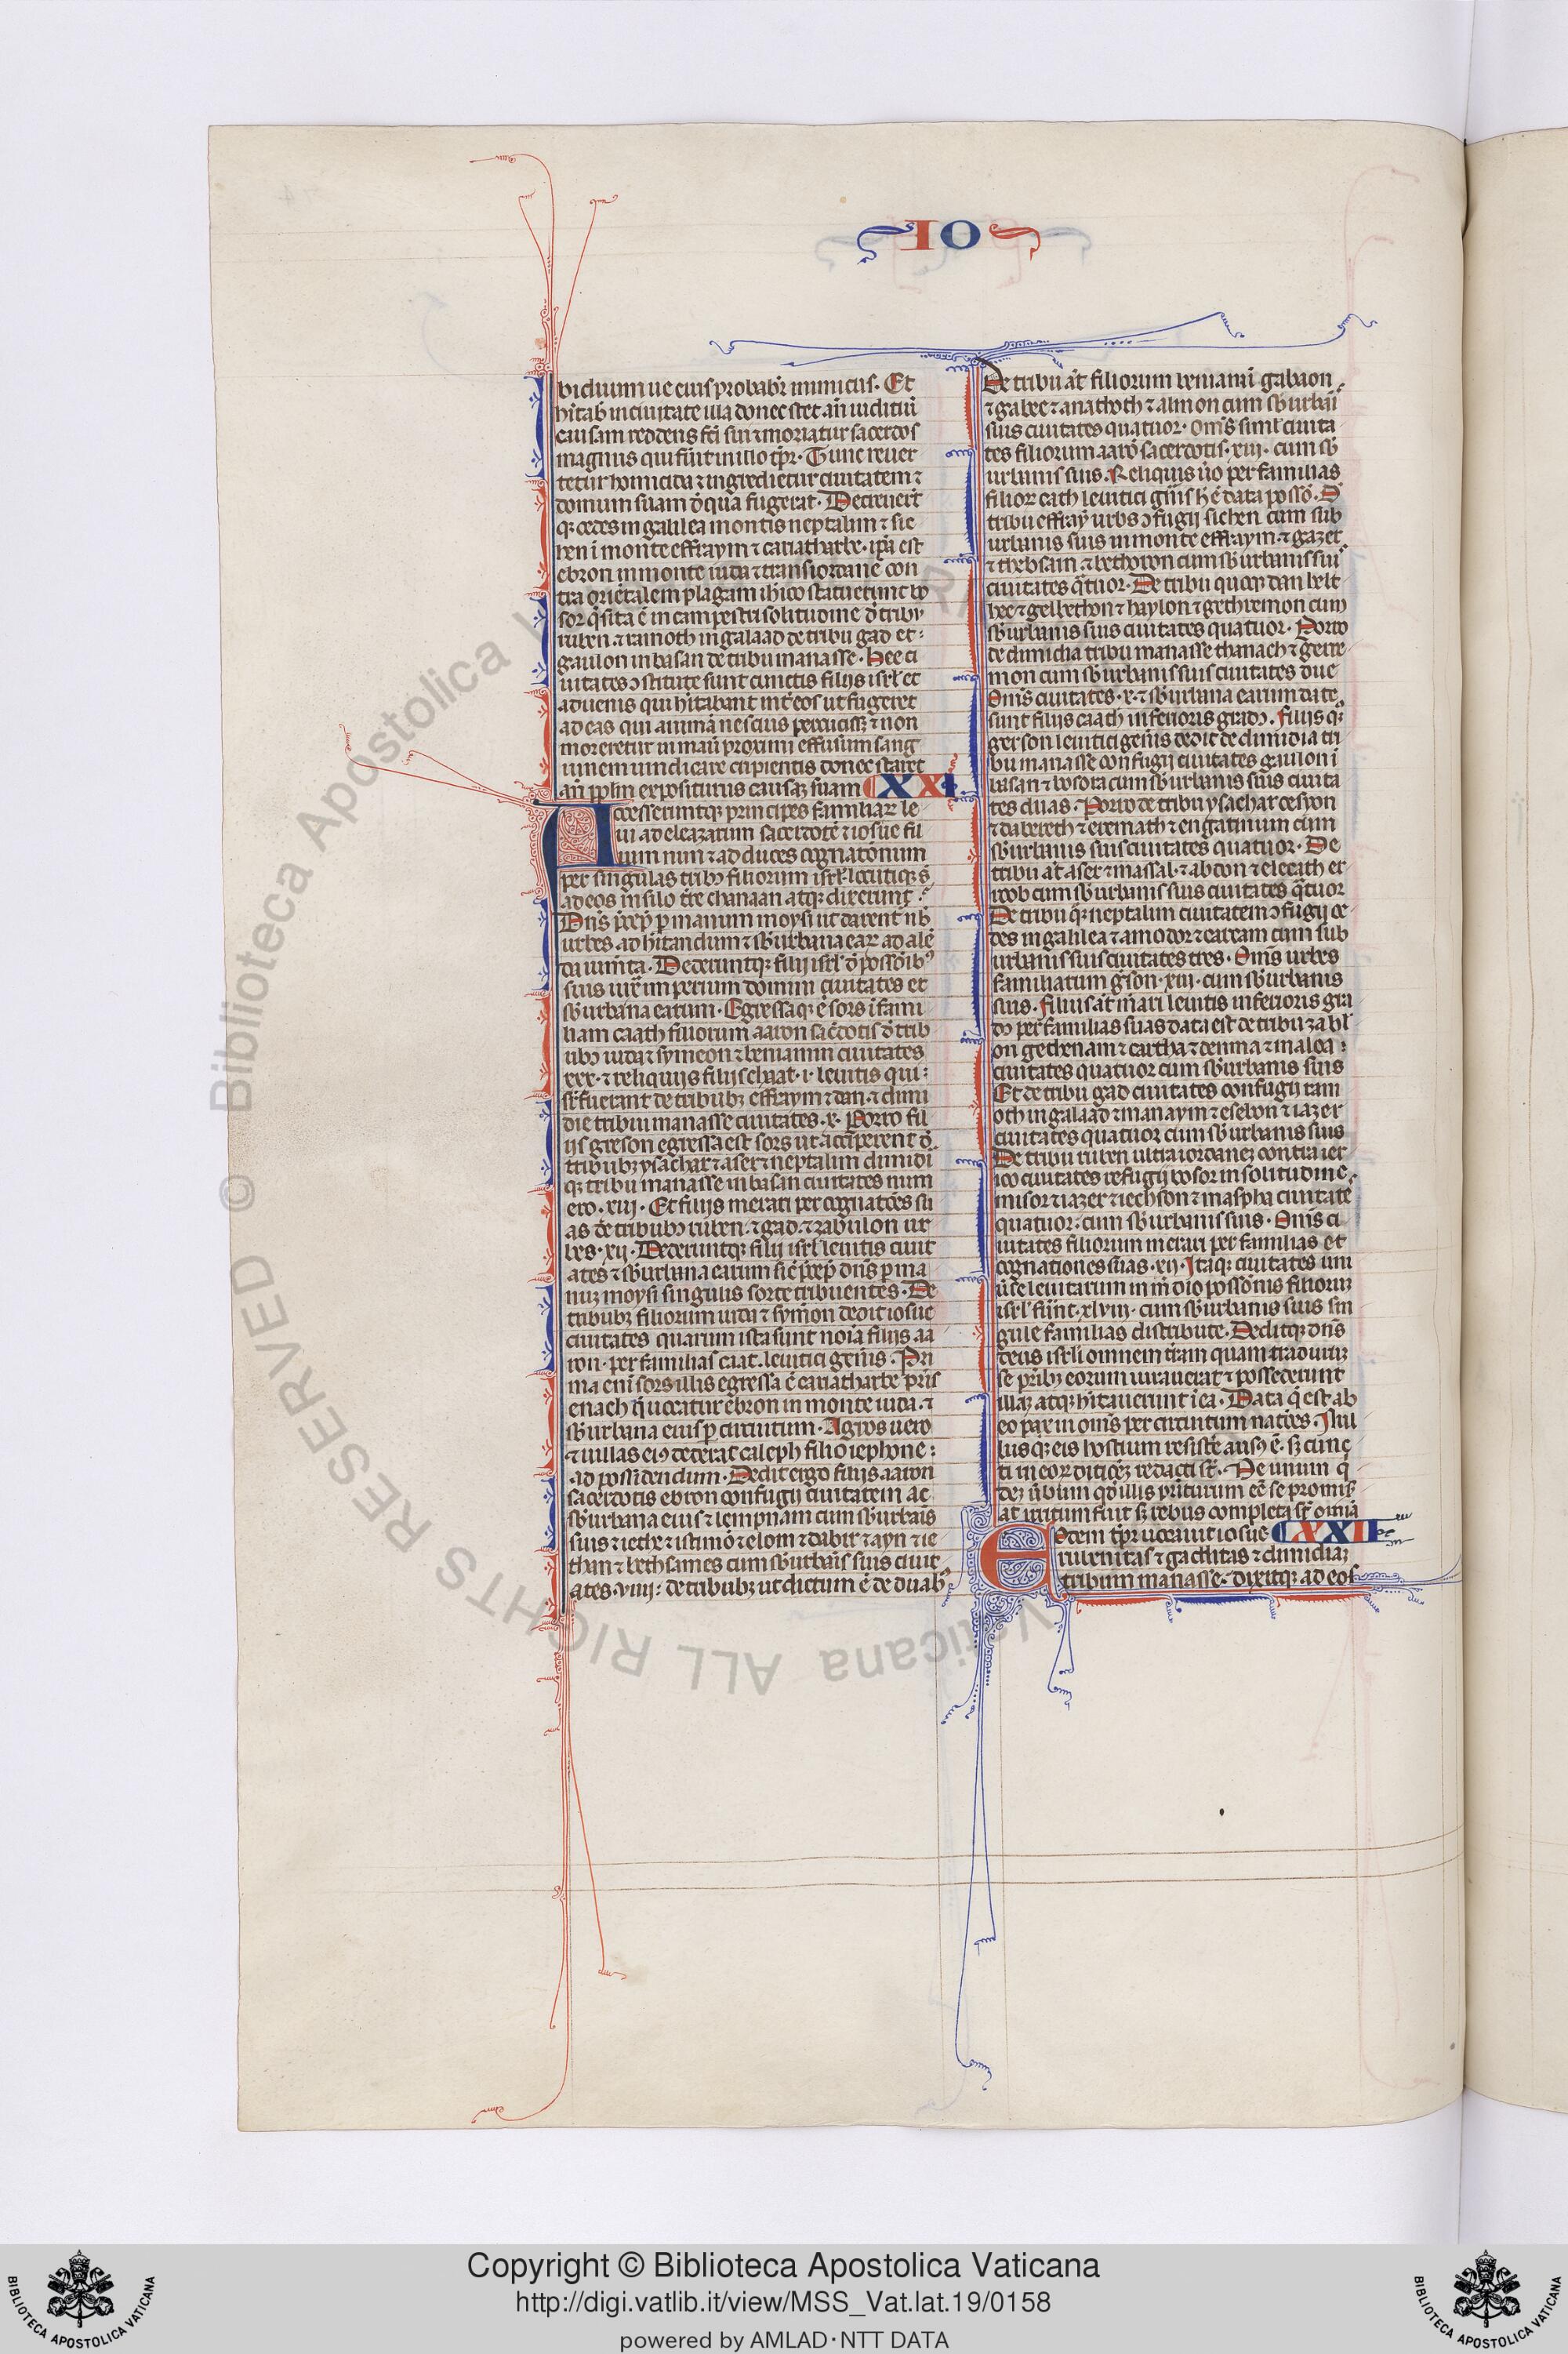 IO
biduum ue eius probabit̉ inimicus. Et
hĩtab in ciuitate illa donec stet añ iudiciũ
causam reddens fc̃i sui ⁊ moriatur sacerdos
magnus qui fũit in illo tp̃r. Tunc reuer
tetur homicida ⁊ ingredietur ciuitatem ⁊
domum suam d̃ qua fugerat. Decreuert̃
q̃ cedes in galilea montis neptalim ⁊ sic
hen ĩ monte effraym ⁊ cariatharbe. ip̃a est
ebron in monte iuda ⁊ transiordanẽ con
tra orientalem plagam ih̃ico statuerunt bo
sor q̃ sita ẽ in campestri solitudine d̃ tribu
ruben. ⁊ ramoth in galaad de tribu gad et
gaulon in basan de tribu manasse. Hee ci
uitates ɔstitute sunt cunctis filijs isrl̃ et
aduenis qui hĩtabant int̃ eos ut fugeret
ad eas qui animã nescius percussiss ⁊ non
moreretur in manu proximi effusum sang
uinem uindicare cupientis donec staret
añ pplm expositurus causaʒ suam XXI
Accesseruntqʒ principes familiaꝝ le
ui ad eleazarum sacerdotẽ ⁊ iosue fil
ium nun ⁊ ad duces cognatõnum
per singulas tribꝰ filiorum isrl̃ locutiqʒ s̃
ad eos in silo tr̃e chanaan atqʒ dixerunt.
Dñs p̃cep̃ p̱ manum moysi ut darent nb̃
urbes ad hĩtandum ⁊ sb̃urbana eaꝝ ad alẽ
da ium̃ta. Dederuntqʒ filij isrl̃ d̃ possõibꝰ
suis iuxͭ imperium domini ciuitates et
sb̃urbana earum. Egressaqʒ ẽ sors ĩ fami
liam caath filiorum aaron sac̃dotis d̃ trib
ubꝰ iuda ⁊ symeon ⁊ beniamin ciuitates
xxx. ⁊ reliquijs filijs chaat. i. leuitis qui
sr̃fuerant de tribubʒ effraym ⁊ dan. ⁊ dimi
die tribui manasse ciuitates .x. Porro fil
ijs gerson egressa est sors ut acciperent d̃
tribubʒ ysachar ⁊ aser ⁊ neptalim dimidi
qʒ tribu manasse in basan ciuitates num
ero .xiij. Et filijs merari per cognatões su
as de tribubꝰ ruben. ⁊ gad. ⁊ zabulon ur
bes .xij. Dederuntqʒ filij isrl̃ leuitis ciuit
ates ⁊ sb̃urbana earum sic̃ p̃cep̃ dñs p̱ ma
nuʒ moysi singulis sorte tribuentes. De
tribubʒ filiorum iuda ⁊ symon dedit iosue
ciuitates quarum ista sunt noĩa filijs aa
ron. per familias caat. leuitici geñis. Pri
ma eñi sors illis egressa ẽ cariatharbe pr̃is
enach q̃ uocatur ebron in monte iuda. ⁊
sb̃urbana eius p̱ circuitum. Agros uero
⁊ uillas eiꝰ dederat caleph filio iephone
ad possidendum. Dedit ergo filijs aaron
sacerdotis ebron confugij ciuitatem ac
sb̃urbana eius ⁊ lempnam cum sb̃urbais
suis ⁊ iethe ⁊ istimõ ⁊ elom ⁊ dabir ⁊ ayn ⁊ ie
than ⁊ bethsames cum sb̃urbais suis ciuit
ates .viiij. de tribubʒ ut dictum ẽ de duabꝰ
De tribu ãt filiorum beniami gabaon
⁊ gabee ⁊ anathoth ⁊ almon cum sb̃urbãi
suis ciuitates quatuor. Om̃s siml̃ ciuita
tes filiorum aarõ sacerdotis .xiij. cum sb̃
urbanis suis. Reliquis ũo per familias
filioꝝ cath leuitici geñis h̃ ẽ data possõ. D̃
tribu effraȳ urbs ɔfugij sichen cum sub
urbanis suis in monte effraym. ⁊ gazer
⁊ thebsain. ⁊ bethoron cum sb̃urbanis sui
ciuitates q̃tuor. De tribu quoqʒ dan helt
hec ⁊ gelbethon ⁊ haylon ⁊ gethremon cum
sb̃urbanis suis ciuitates quatuor. Porro
de dimidia tribu manasse thanach ⁊ getre
mon cum sb̃urbanis suis ciuitates due
Om̃s ciuitates .x. ⁊ sb̃urbana earum date
sunt filijs caath inferioris gradꝰ. Filijs qʒ
gerson leuitici geñis dedit de dimidia tri
bu manasse confugij ciuitates gaulon ĩ
basan ⁊ bosora cum sb̃urbanis suis ciuita
tes duas. Porro de tribu ysachar cesyon
⁊ dabereth ⁊ eremath ⁊ engannium cum
sb̃urbanis suis ciuitates quatuor. De
tribu ãt aser ⁊ massal. ⁊ abdon ⁊ elecath et
roob cum sb̃urbanis suis ciuitates q̃tuor
De tribu q̃ʒ neptalim ciuitatem ɔfugij ce
des in galilea ⁊ amodor ⁊ caream cum sub
urbanis suis ciuitates tres. Om̃s urbes
familiarum g̃son .xiij. cum sb̃urbanis
suis. Filijs ãt m̃ari leuitis inferioris gra
dꝰ per familias suas data est de tribu zabl̃
on gethenam ⁊ cartha ⁊ denma ⁊ maloa
ciuitates quatuor cum sb̃urbanis suis
Et de tribu gad ciuitates confugij ram
oth in galaad ⁊ manaym ⁊ esebon ⁊ iazer
ciuitates quatuor cum sb̃urbanis suis
De tribu ruben ultra iordaneʒ contra ier
ico ciuitates refugij bosor in solitudine
misor ⁊ iazer ⁊ iechson ⁊ maspha ciuitate
quatuor. cum sb̃urbanis suis. Om̃s ci
uitates filiorum merari per familias et
cognationes suas .xij. Itaqʒ ciuitates uni
ũse leuitarum in m̃dio possõnis filioruʒ
isrl̃ fũnt .xlviij. cum sb̃urbanis suis sin
gule familias distribute. Deditqʒ dñs
deus isrl̃i omnem tr̃am quam traditurʒ
se pr̃ibʒ eorum iurauerat ⁊ possederunt
illaʒ atqʒ hĩtauerunt ĩ ea. Data q̃ est ab
eo pax in om̃s per circuitum nat̃oes. Nul
lusqʒ eis hostium resist̃e ausꝰ ẽ. sʒ cunc
ti in eoꝝ diticõeʒ redacti st̃. Ne unum q̃
deʒ ũbum qd̃ illis pr̃iturum eẽ se promiẽ
at irritum fuit sʒ rebus completa st̃ omĩa
Eodem tp̃r uocauit iosue XXII
rubenitas ⁊ gaditas ⁊ dimidiaʒ
tribum manasse. dixitqʒ ad eos
© Biblioteca Apostolica Vaticana ALL RIGHTS RESERVED
Copyright © Biblioteca Apostolica Vaticana
http://digi.vatlib.it/view/MSS_Vat.lat.19/0158
powered by AMLAD·NTT DATA
BIBLIOTECA APOSTOLICA VATICANA
BIBLIOTECA APOSTOLICA VATICANA